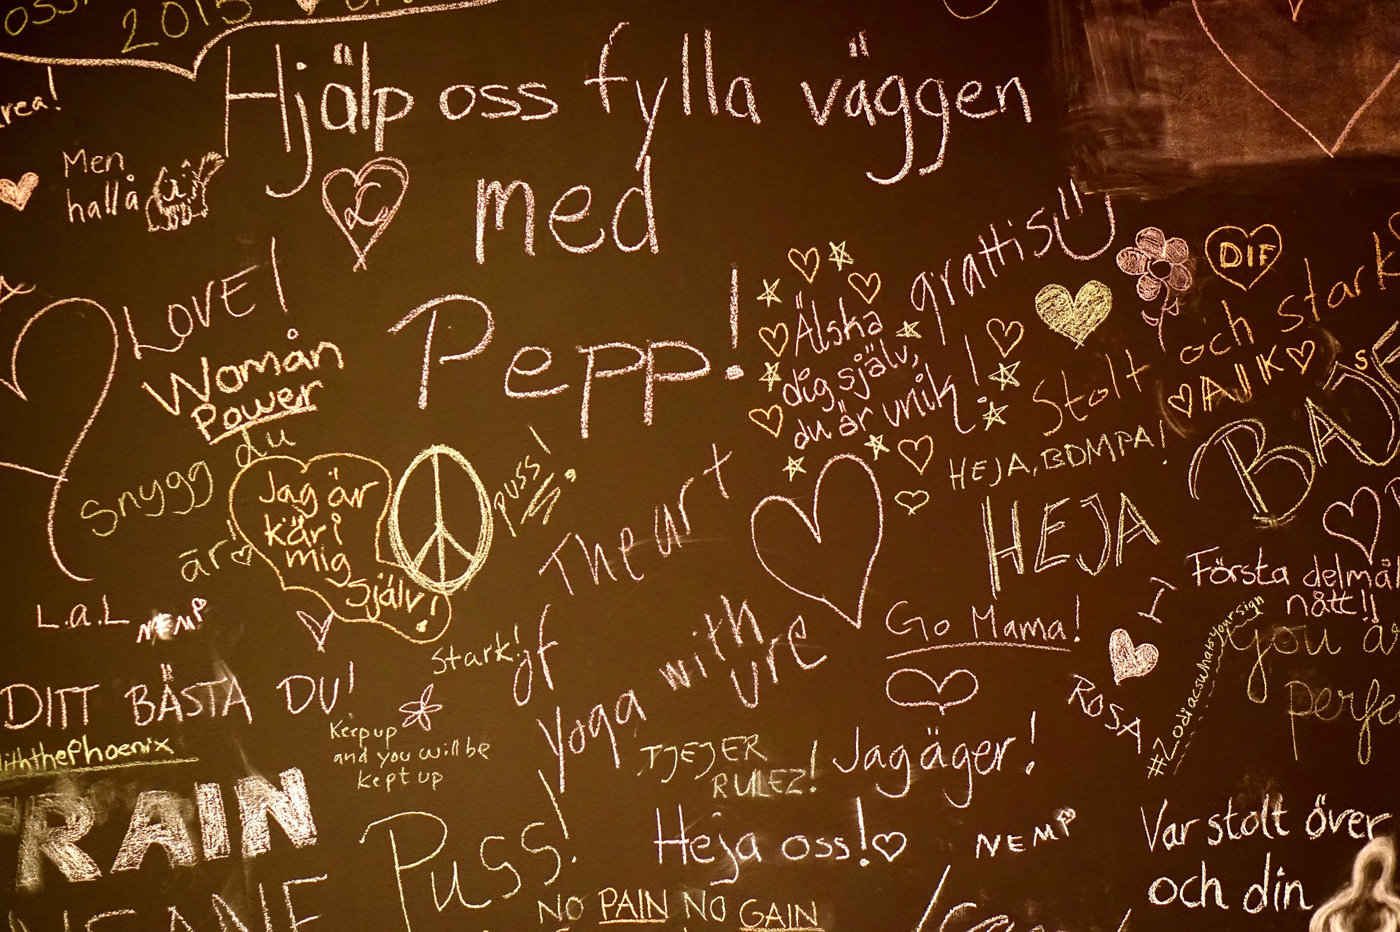 2015
Hjälp oss fylla väggen
med
Pepp!
Men
hallå
LOVE!
Womån
Power
Snygg du
är!
Jag är
kär i
mig
själv!
Puss!
grattis!!!
Älska
dig själv,
du är unik!
DIF
Stolt och stark
AIK
HEJA, BOMPA!
HEJA
BAJE
Första delmål
nått!!
You
perfe
#Zodiacswhatsyoursign
The art
of
Yoga with
ure
Go Mama!
ROSA
L.a.L
NEMP
DITT BÄSTA DU!
Stark!
Keep up
and you will be
kept up
TJEJER
RULEZ!
Jag äger!
iththePhoenix
TRAIN
INSANE
Puss!
Heja oss!
NEMP
NO PAIN NO GAIN
Var stolt över
och din